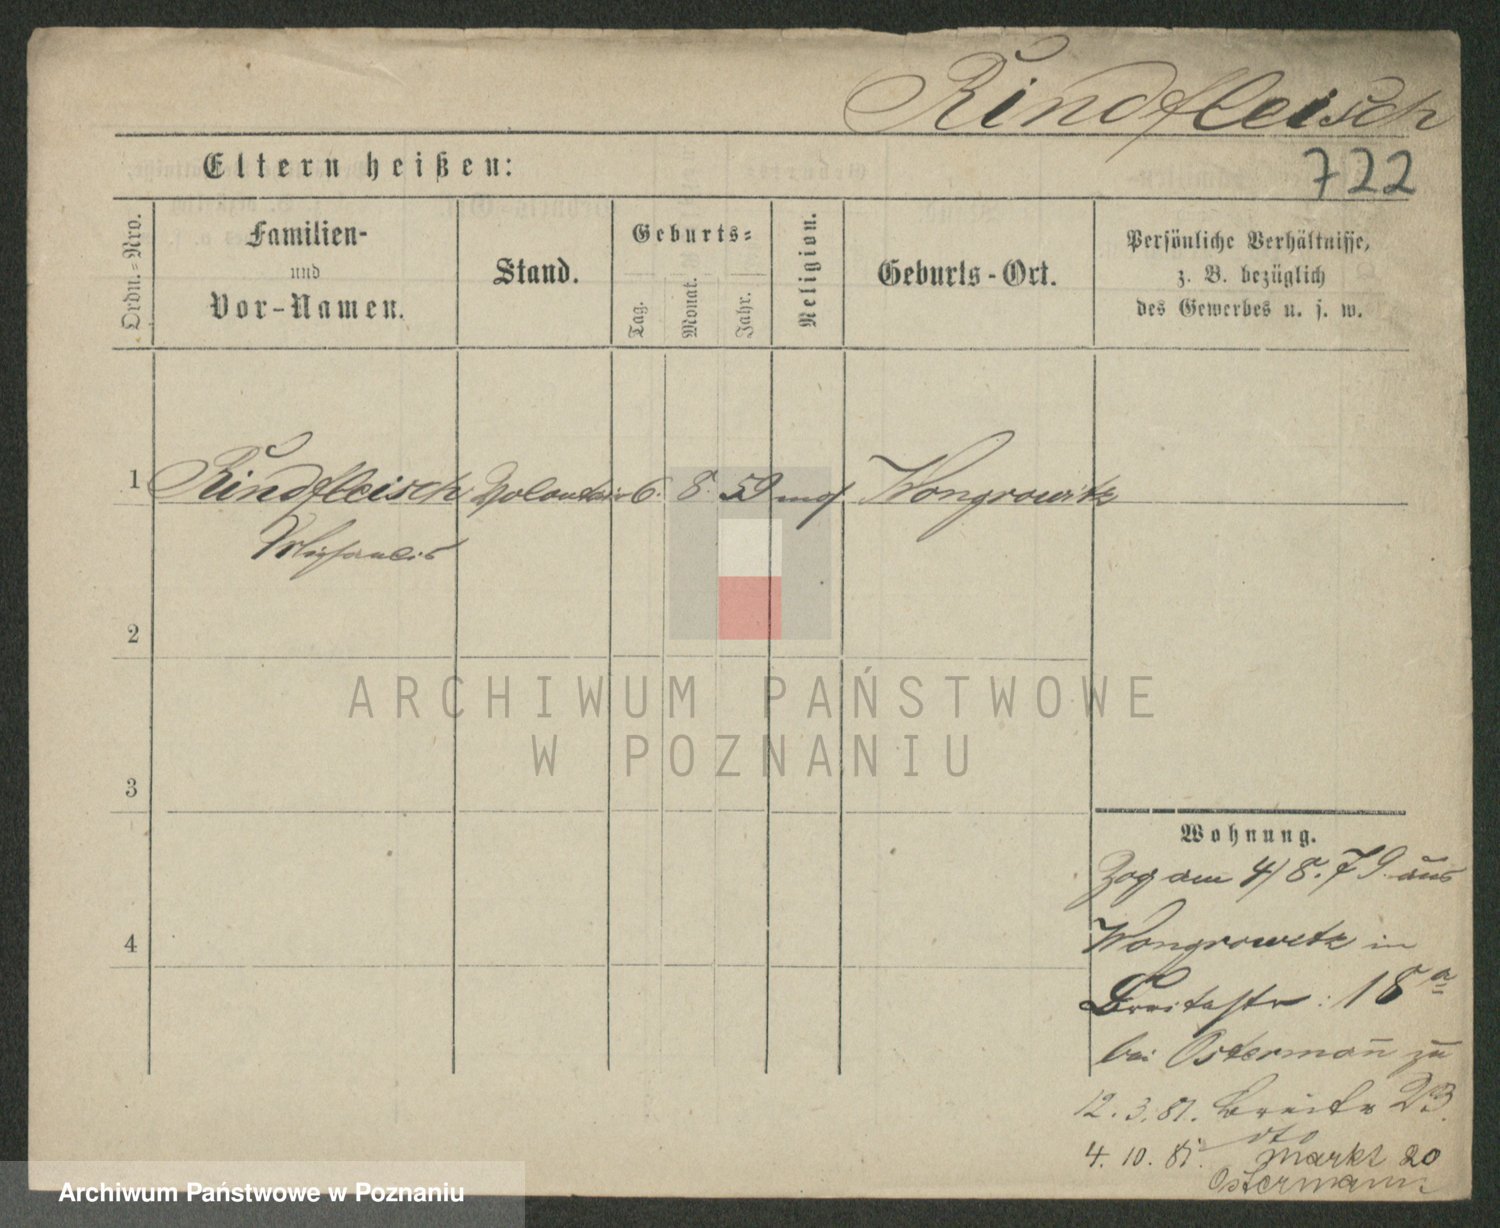 Rindfleisch
722
Eltern heißen:
Ordn.-Nro.
Familien-
und
Vor-Namen.
Stand.
Geburts-
Tag.
Monat.
Jahr.
Religion.
Geburts-Ort.
Persönliche Verhältnisse,
z. B. bezüglich
des Gewerbes u. s. w.
1 Rindfleisch Volontair 6. 8. 59 mos. Wongrowitz
2
3
4
Wohnung.
Zog am 4/8. 79 aus
Wongrowitz in
Breitestr: 18a
bei Ostermañ zu
12. 3. 81. Breite 23.
dto
4. 10. 81. Markt 20
Ostermann
ARCHIWUM PAŃSTWOWE
W POZNANIU
Archiwum Państwowe w Poznaniu